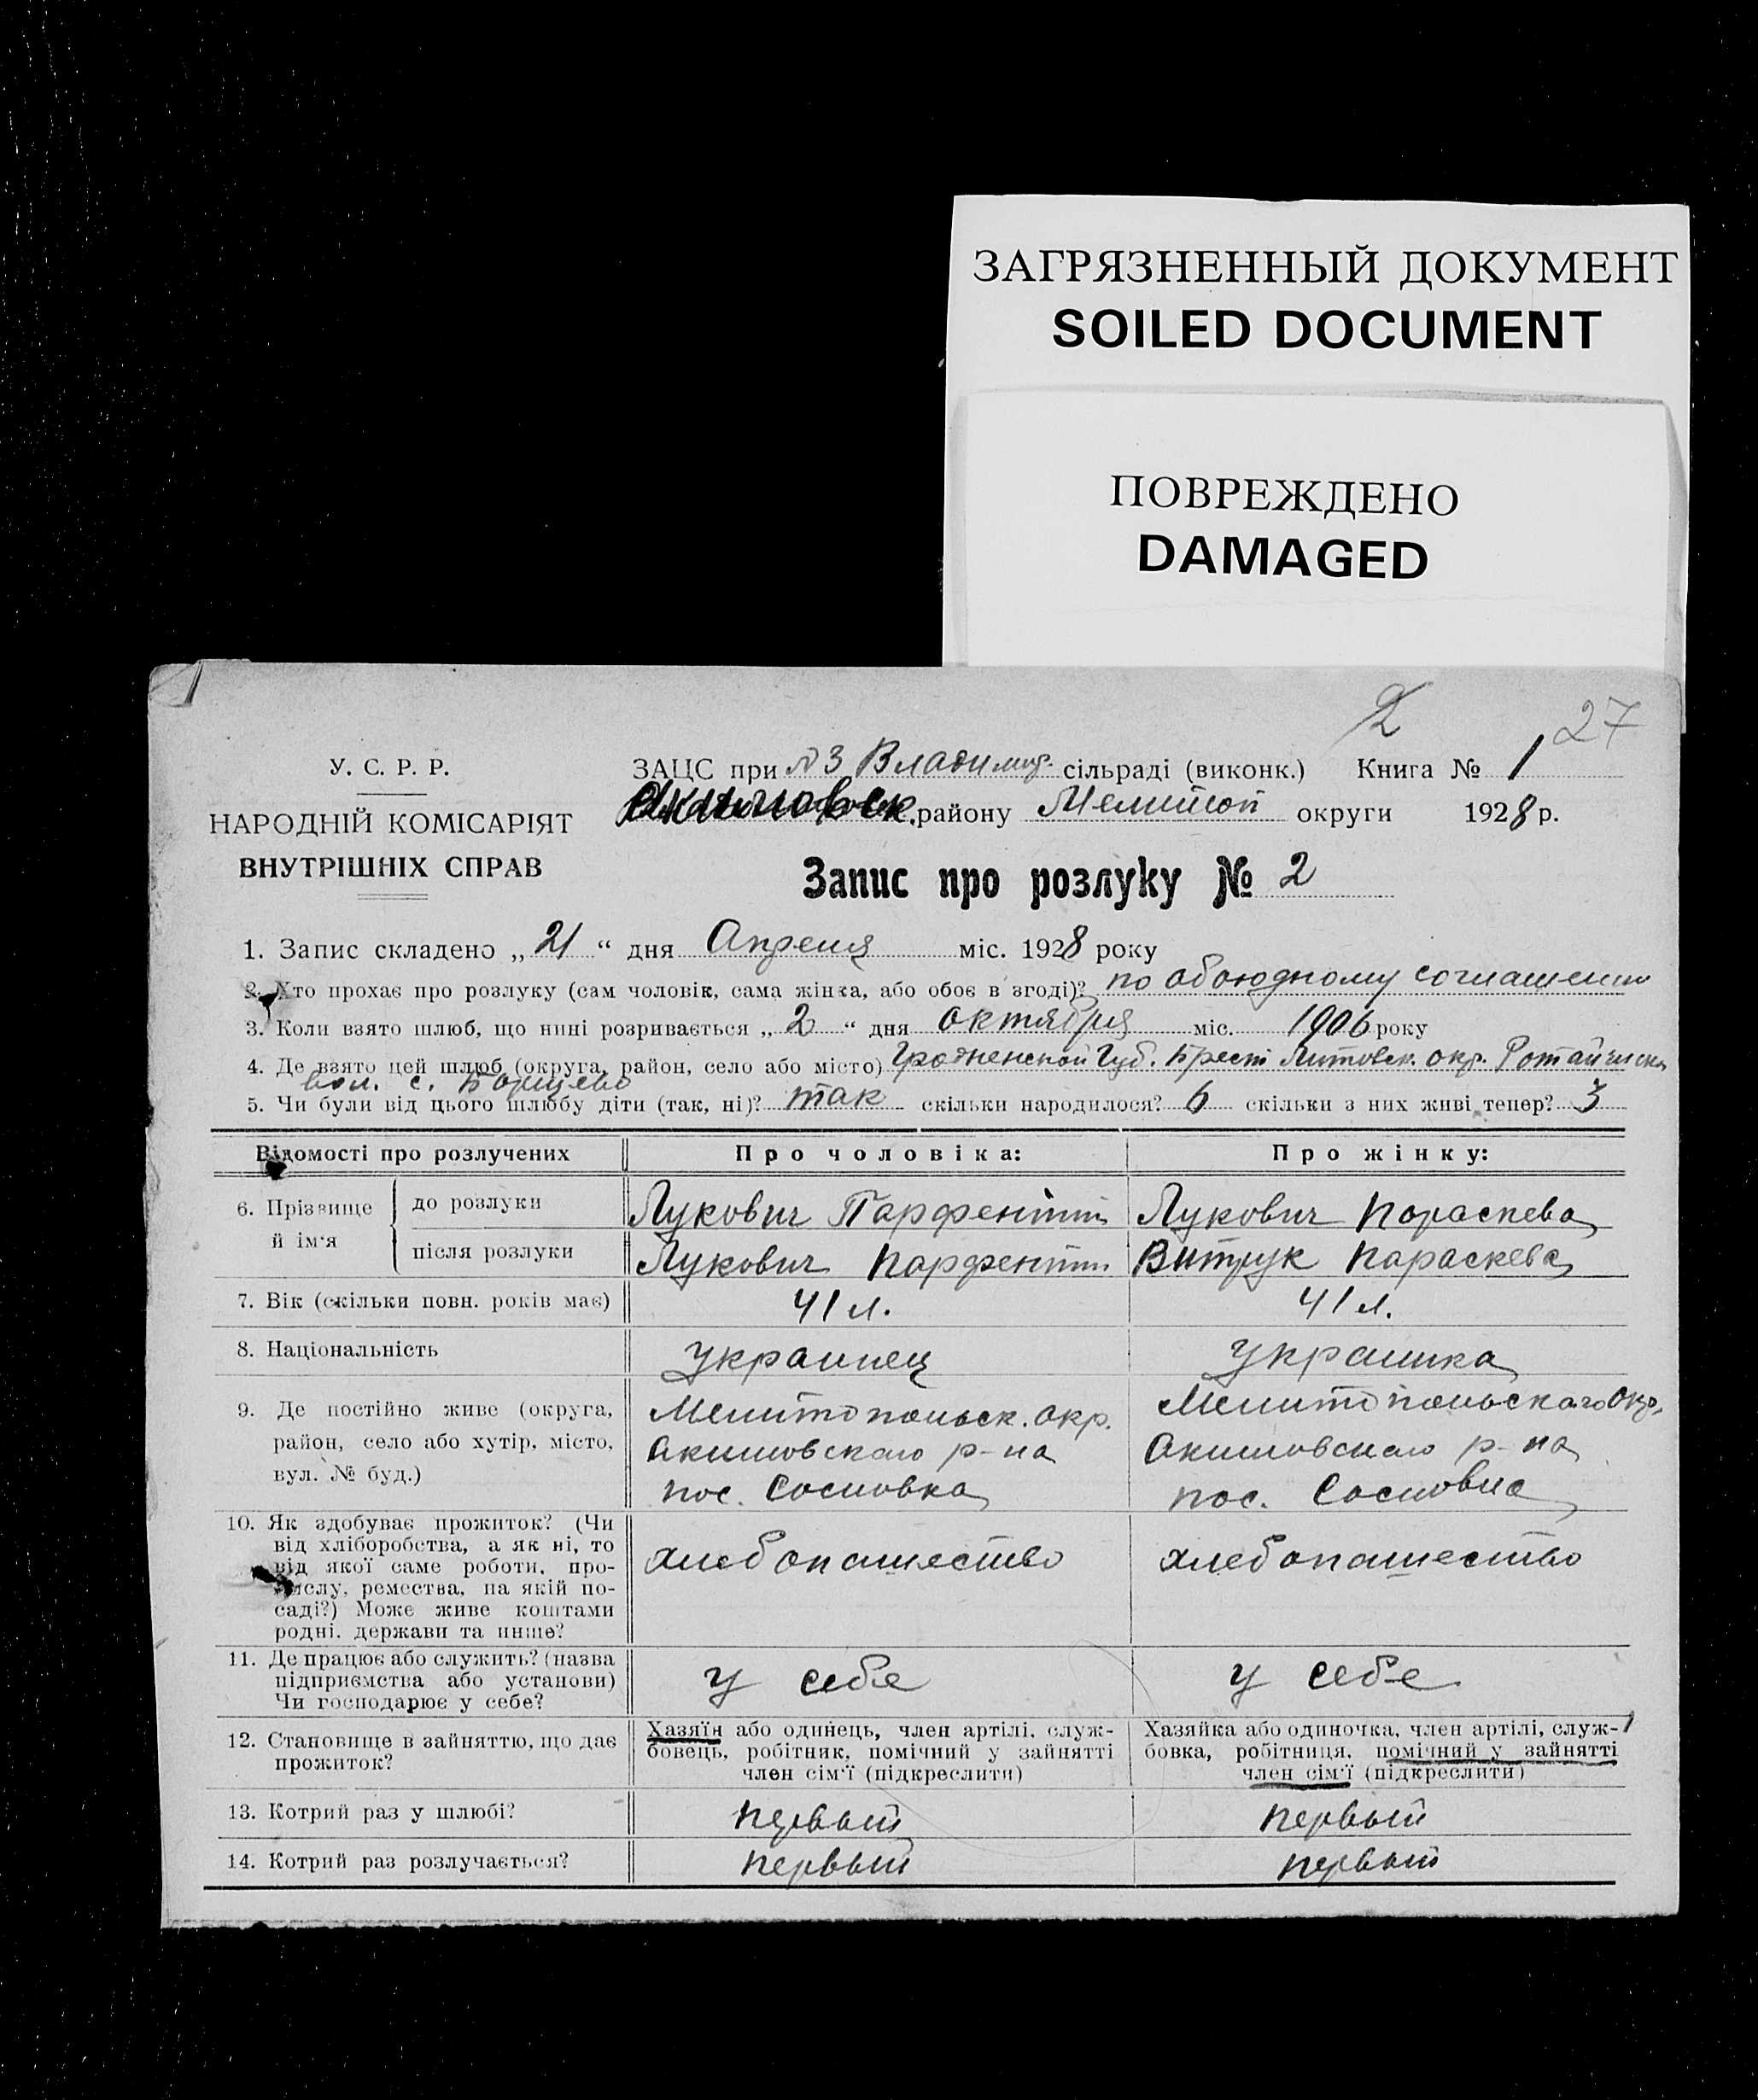 ЗАГРЯЗНЕННЫЙ ДОКУМЕНТ
SOILED DOCUMENT
ПОВРЕЖДЕНО
DAMAGED
2
27
У. С. Р. Р.
НАРОДНІЙ КОМІСАРІЯТ
ВНУТРІШНІХ СПРАВ
ЗАЦС при №3 Владимир. сільраді (виконк.) Книга № 1
Акимовск. району Мелитоп округи 1928 р.
Запис про розлуку № 2
1. Запис складено „ 21 “ дня Апреля міс. 1928 року
2. Хто прохає про розлуку (сам чоловік, сама жінка, або обоє в згоді)? по обоюдному соглашению
3. Коли взято шлюб, що нині розривається „ 2 “ дня октября міс. 1906 року
4. Де взято цей шлюб (округа, район, село або місто) Гродненской Губ. Брест Литовск. окр. Ротайчиск
вол. с. Борщево
5. Чи були від цього шлюбу діти (так, ні)? так скільки народилося? 6 скільки з них живі тепер? 3
Відомості про розлучених Про чоловіка: Про жінку:
6. Прізвище й ім'я до розлуки Лукович Парфентий Лукович Параскева
після розлуки Лукович Парфентий Витрук Параскева
7. Вік (скільки повн. років має) 41 л. 41 л.
8. Національність украинец украинка
9. Де постійно живе (округа, район, село або хутір, місто, вул. № буд.)
Мелитопольск. окр.
Акимовскаго р-на
пос. Сосновка
Мелитопольскаго Окр.
Акимовскаго р-на
пос. Сосновка
10. Як здобуває прожиток? (Чи
від хліборобства, а як ні, то
від якої саме роботи, про-
мислу, ремества, на якій по-
саді?) Може живе коштами
родні, держави та инше?
хлебопашество хлебопашество
11. Де працює або служить? (назва
підприємства або установи)
Чи господарює у себе?
у себе у себе
12. Становище в зайняттю, що дає
прожиток?
Хазяїн або одинець, член артілі, служ-
бовець, робітник, помічний у зайнятті
член сім'ї (підкреслити)
Хазяйка або одиночка, член артілі, служ-
бовка, робітниця, помічний у зайнятті
член сім'ї (підкреслити)
13. Котрий раз у шлюбі? первый первый
14. Котрий раз розлучається? первый первый